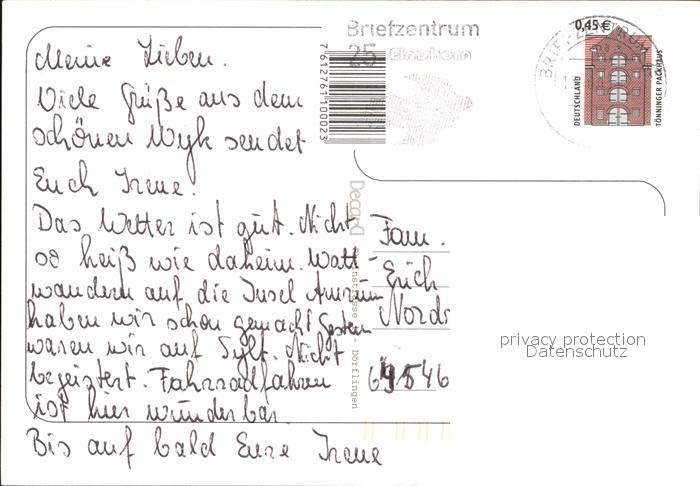 Meine Lieben.
Viele Grüße aus dem
schönen Wyk sendet
Euch Irene.
Das Wetter ist gut. Nicht
so heiß wie daheim. Watt-
wandern auf die Insel Amrum
haben wir schon gemacht Gestern
waren wir auf Sylt. Nicht
begeistert. Fahrradfahren
ist hier wunderbar.
Bis auf bald Eure Irene
Briefzentrum
25 Elmshorn
7612761100023
0,45 €
DEUTSCHLAND
TÖNNINGER PACKHAUS
BRIEFZENTRUM
Fam.
Erich
Nords
69546
Dörflingen
privacy protection
Datenschutz